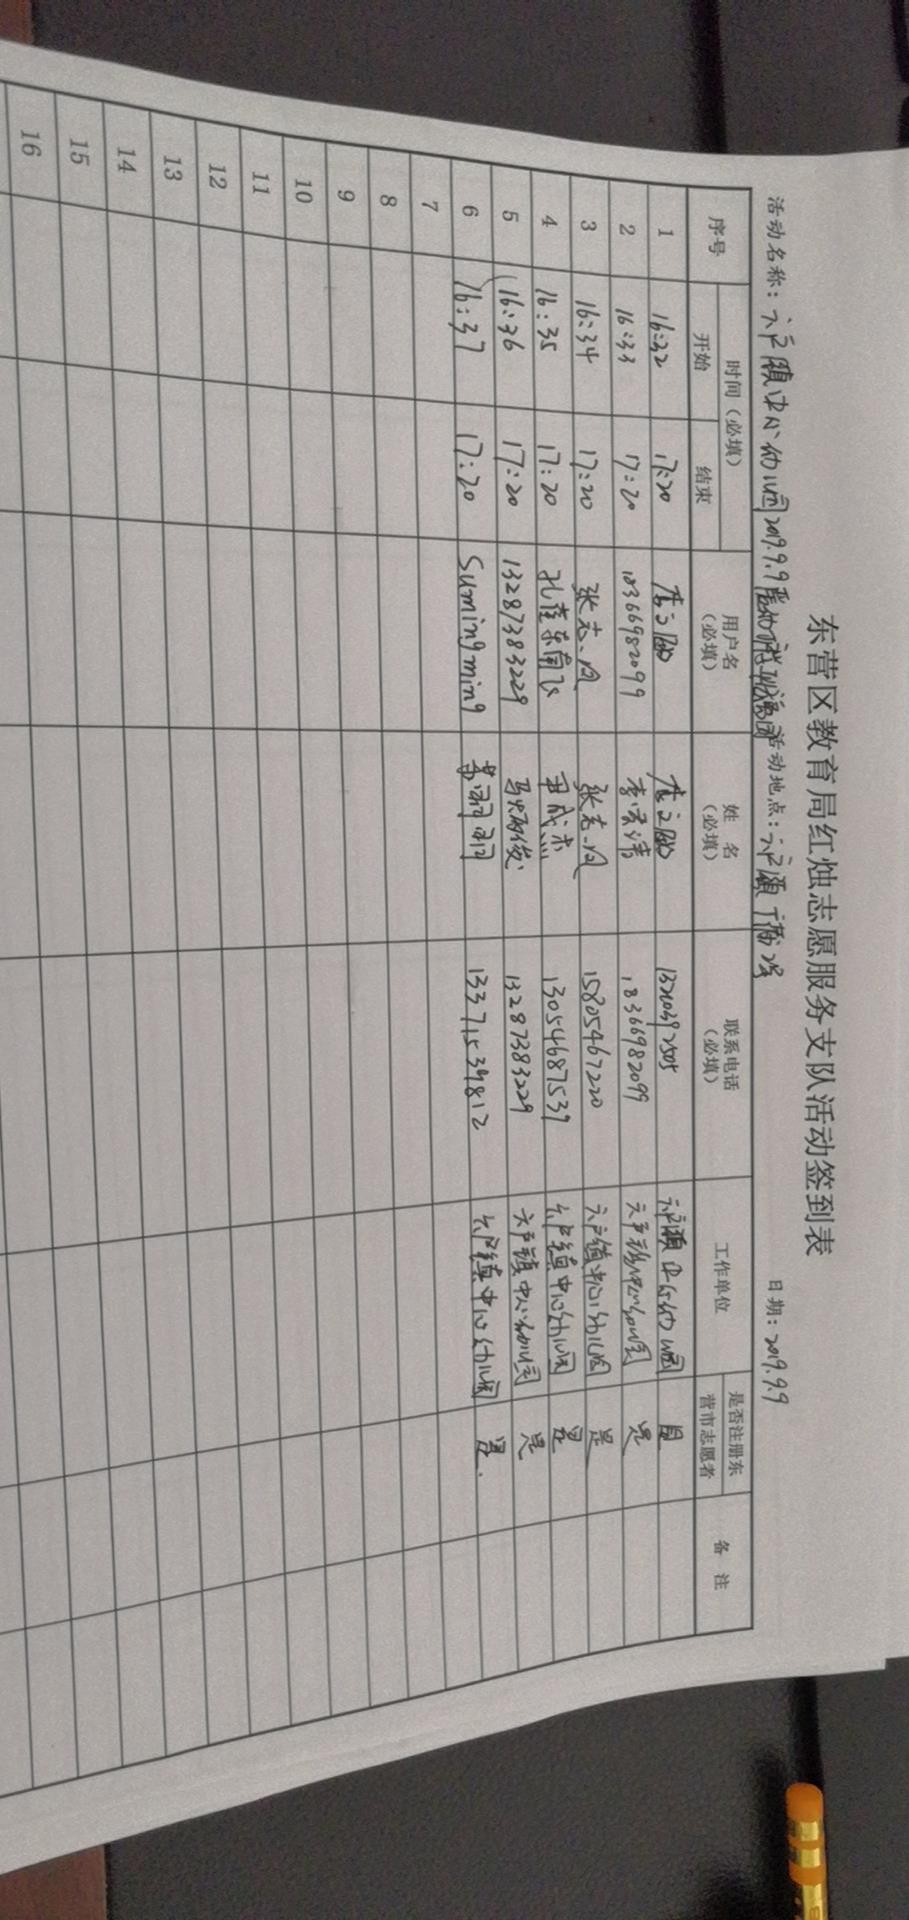 东营区教育局红烛志愿服务支队活动签到表
活动名称：六户镇中心幼儿园2019.9.9 活动地点：六户镇 日期：2019.9.9
序号 时间（必填） 用户名（必填） 姓名（必填） 联系电话（必填） 工作单位 是否注册东营市志愿者 备注
开始 结束
1 16:32 17:20 六户镇中心幼儿园 是
2 16:33 17:20 18366982099 18366982099 六户镇中心幼儿园 是
3 16:34 17:20 张志凤 张志凤 15805467220 六户镇中心幼儿园 是
4 16:35 17:20 孔雀东南飞 13054687539 六户镇中心幼儿园 是
5 16:36 17:20 13287383229 13287383229 六户镇中心幼儿园 是
6 16:37 17:20 Sumingming 13371539812 六户镇中心幼儿园 是.
7
8
9
10
11
12
13
14
15
16